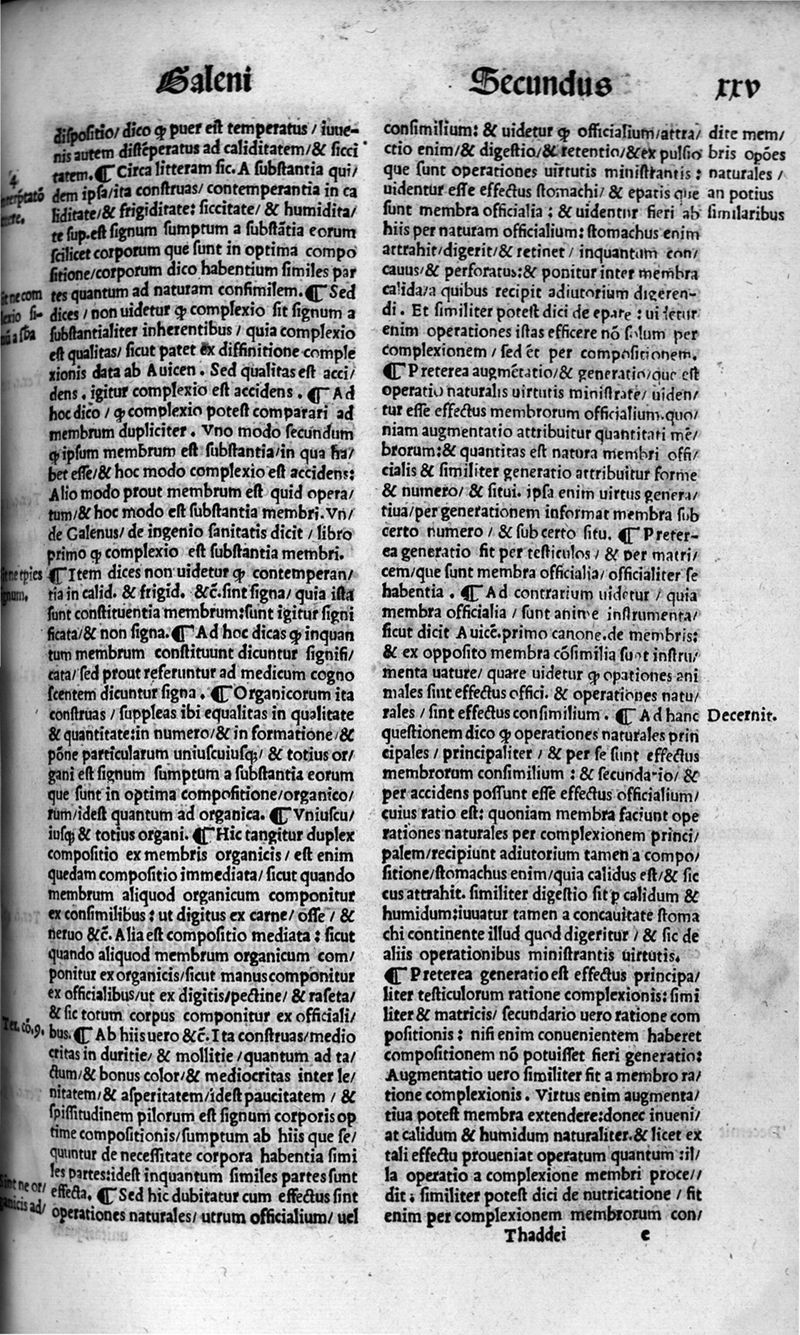 Galeni Secundus xxv
dispositio/ dico ꝙ puer est temperatus / iuue-
nis autem distēperatus ad caliditatem/& sicci
tatem. ¶ Circa litteram sic. A substantia qui/
dem ipsa/ita construas/ contemperantia in ca
liditate/& frigiditate: siccitate/ & humidita/
te sup. est signum sumptum a substātia eorum
scilicet corporum que sunt in optima compo
sitione/corporum dico habentium similes par
tes quantum ad naturam consimilem. ¶ Sed
dices / non uidetur ꝙ complexio sit signum a
substantialiter inherentibus / quia complexio
est qualitas/ sicut patet ex diffinitione comple
xionis data ab Auicen. Sed qualitas est acci/
dens. igitur complexio est accidens. ¶ Ad
hoc dico / ꝙ complexio potest comparari ad
membrum dupliciter. Vno modo secundum
ꝙ ipsum membrum est substantia/in qua ha/
bet esse/& hoc modo complexio est accidens:
Alio modo prout membrum est quid opera/
tum/& hoc modo est substantia membri. Vn/
de Galenus/ de ingenio sanitatis dicit / libro
primo ꝙ complexio est substantia membri.
¶ Item dices non uidetur ꝙ contemperan/
tia in calid. & frigid. &c̄. sint signa/ quia ista
sunt constituentia membrum: sunt igitur signi
ficata/& non signa. ¶ Ad hoc dicas ꝙ inquan
tum membrum constituunt dicuntur signifi/
cata/ sed prout referuntur ad medicum cogno
scentem dicuntur signa. ¶ Organicorum ita
construas / suppleas ibi equalitas in qualitate
& quantitate: in numero/& in formatione/&
pōne particularum uniuscuiusqꝫ/ & totius or/
gani est signum sumptum a substantia eorum
que sunt in optima compositione/organico/
rum/idest quantum ad organica. ¶ Vniuscu/
iusqꝫ & totius organi. ¶ Hic tangitur duplex
compositio ex membris organicis / est enim
quedam compositio immediata/ sicut quando
membrum aliquod organicum componitur
ex consimilibus: ut digitus ex carne/ osse / &
neruo &c̄. Alia est compositio mediata: sicut
quando aliquod membrum organicum com/
ponitur ex organicis/sicut manus componitur
ex officialibus/ut ex digitis/pectine/ & raseta/
& sic totum corpus componitur ex officiali/
bus. ¶ Ab hiis uero &c̄. Ita construas/medio
critas in duritie/ & mollitie / quantum ad ta/
ctum/& bonus color/& mediocritas inter le/
nitatem/& asperitatem/idest paucitatem / &
spissitudinem pilorum est signum corporis op
time compositionis/sumptum ab hiis que se/
quuntur de necessitate corpora habentia simi
les partes: idest inquantum similes partes sunt
effecta. ¶ Sed hic dubitatur cum effectus sint
operationes naturales/ utrum officialium/ uel
4
Tex. cō. 9.
consimilium: & uidetur ꝙ officialium/attra/
ctio enim/& digestio/& retentio/& expulsio
que sunt operationes uirtutis ministrantis:
uidentur esse effectus stomachi/ & epatis que
sunt membra officialia: & uidentur fieri ab
hiis per naturam officialium: stomachus enim
attrahit/digerit/& retinet / inquantum con/
cauus/& perforatus: & ponitur inter membra
calida/a quibus recipit adiutorium digeren-
di. Et similiter potest dici de epare: uidetur
enim operationes istas efficere nō solum per
complexionem / sed ēt per compositionem.
¶ Preterea augmētatio/& generatio/que est
operatio naturalis uirtutis ministrate/ uiden/
tur esse effectus membrorum officialium. quo/
niam augmentatio attribuitur quantitati mē/
brorum: & quantitas est natura membri offi/
cialis & similiter generatio attribuitur forme
& numero/ & situi. ipsa enim uirtus genera/
tiua/per generationem informat membra sub
certo numero / & sub certo situ. ¶ Preter-
ea generatio fit per testiculos / & per matri/
cem/que sunt membra officialia/ officialiter se
habentia. ¶ Ad contrarium uidetur / quia
membra officialia / sunt anime instrumenta/
sicut dicit Auicē. primo canone. de membris:
& ex opposito membra cōsimilia sunt instru/
menta nature/ quare uidetur ꝙ opationes ani
males sint effectus offici. & operationes natu/
rales / sint effectus consimilium. ¶ Ad hanc
questionem dico ꝙ operationes naturales prin
cipales / principaliter / & per se sunt effectus
membrorum consimilium: & secundario/ &
per accidens possunt esse effectus officialium/
cuius ratio est: quoniam membra faciunt ope
rationes naturales per complexionem princi/
palem/recipiunt adiutorium tamen a compo/
sitione/stomachus enim/quia calidus est/& sic
cus attrahit. similiter digestio fit ꝑ calidum &
humidum: iuuatur tamen a concauitate stoma
chi continente illud quod digeritur / & sic de
aliis operationibus ministrantis uirtutis.
¶ Preterea generatio est effectus principa/
liter testiculorum ratione complexionis: simi
liter & matricis/ secundario uero ratione com
positionis: nisi enim conuenientem haberet
compositionem nō potuisset fieri generatio:
Augmentatio uero similiter fit a membro ra/
tione complexionis. Virtus enim augmenta/
tiua potest membra extendere: donec inueni/
at calidum & humidum naturaliter. & licet ex
tali effectu proueniat operatum quantum: il/
la operatio a complexione membri proce//
dit: similiter potest dici de nutricatione / fit
enim per complexionem membrorum con/
dite mem/
bris opōes
naturales/
an potius
similaribus
Decernit.
Thaddei e